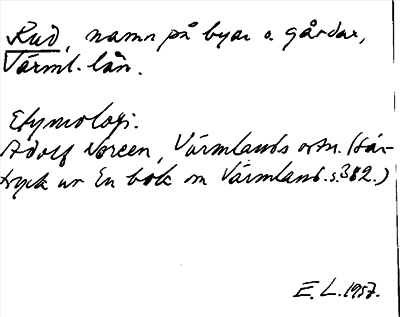 Rud, namn på byar o. gårdar,
Värml. län.
Etymologi.
Adolf Noreen, Värmlands ortn. (Sär-
tryck ur En bok om Värmland. s. 382.)
E. L. 1957.